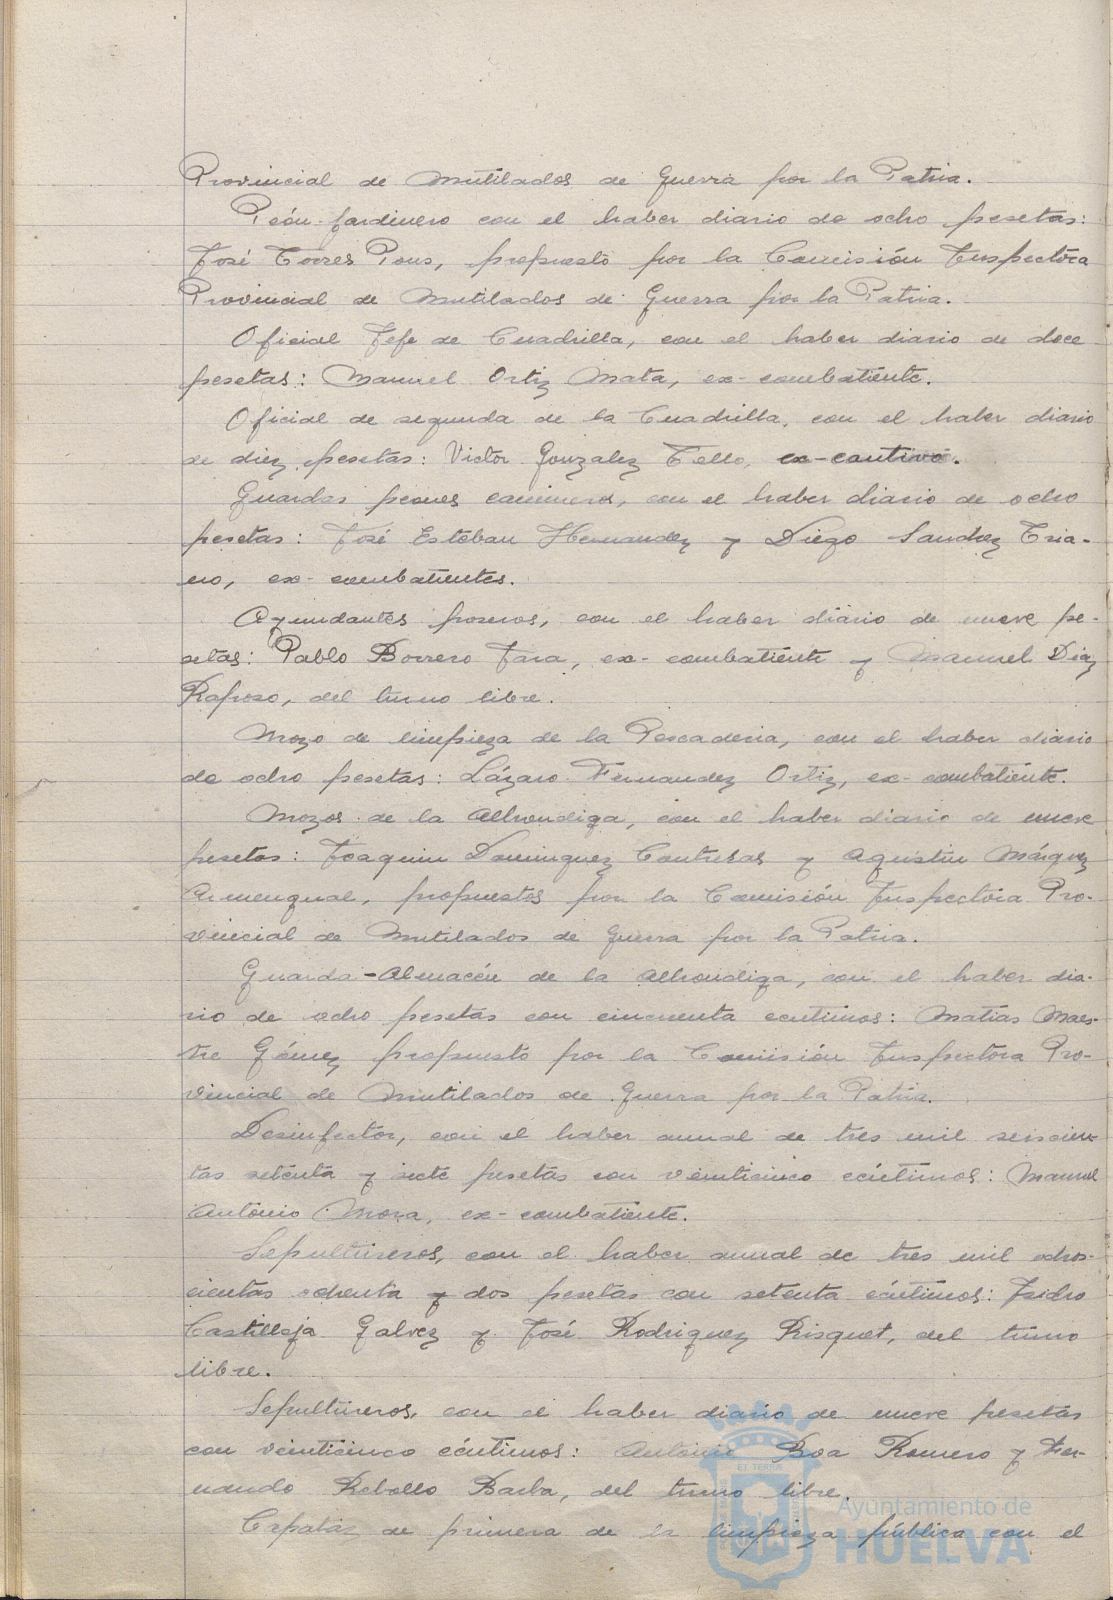 Provincial de Mutilados de Guerra por la Patria.
Peón-jardinero con el haber diario de ocho pesetas:
José Torres Pons, propuesto por la Comisión Inspectora
Provincial de Mutilados de Guerra por la Patria.
Oficial Jefe de Cuadrilla, con el haber diario de doce
pesetas: Manuel Ortiz Mata, ex-combatiente.
Oficial de segunda de la Cuadrilla, con el haber diario
de diez pesetas: Victor Gonzalez Tello, ex-cautivo.
Guardas peones camineros, con el haber diario de ocho
pesetas: José Esteban Hernandez y Diego Sanchez Tria-
no, ex-combatientes.
Ayundantes poseros, con el haber diario de nueve pe-
setas: Pablo Borrero Jara, ex-combatiente y Manuel Diaz
Raposo, del turno libre.
Mozo de limpieza de la Pescaderia, con el haber diario
de ocho pesetas: Lázaro Fernandez Ortiz, ex-combatiente.
Mozos de la Alhondiga, con el haber diario de nueve
pesetas: Joaquin Dominguez Contreras y Agustin Márquez
Armengual, propuestos por la Comisión Inspectora Pro-
vincial de Mutilados de Guerra por la Patria.
Guarda-Almacén de la Alhondiga, con el haber dia-
rio de ocho pesetas con cincuenta centimos: Matias Maes-
tre Gómez propuesto por la Comisión Inspectora Pro-
vincial de Mutilados de Guerra por la Patria.
Desinfector, con el haber anual de tres mil seiscien-
tas setenta y siete pesetas con veinticinco céntimos: Manuel
Antonio Mora, ex-combatiente.
Sepultureros, con el haber anual de tres mil ochos-
cientas ochenta y dos pesetas con setenta céntimos: Isidro
Castilleja Galvez y José Rodriguez Risquet, del turno
libre.
Sepultureros, con el haber diario de nueve pesetas
con veinticinco céntimos: Antonio Boa Romero y Fer-
nando Rebollo Barba, del turno libre.
Capataz de primera de la limpieza pública con el
Ayuntamiento de
HUELVA